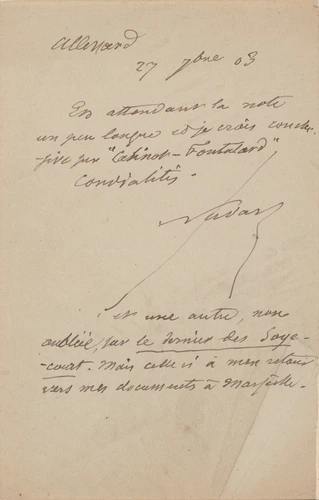 Allevard
27 7bre 03
En attendant la note
un peu longue et je crois conclu-
sive sur "Cabinet-Fontalard"
Cordialités.
Nadar
et une autre, non
oubliée, sur le dernier des Soye-
court. Mais celle ci à mon retour
vers mes documents à Marseille.